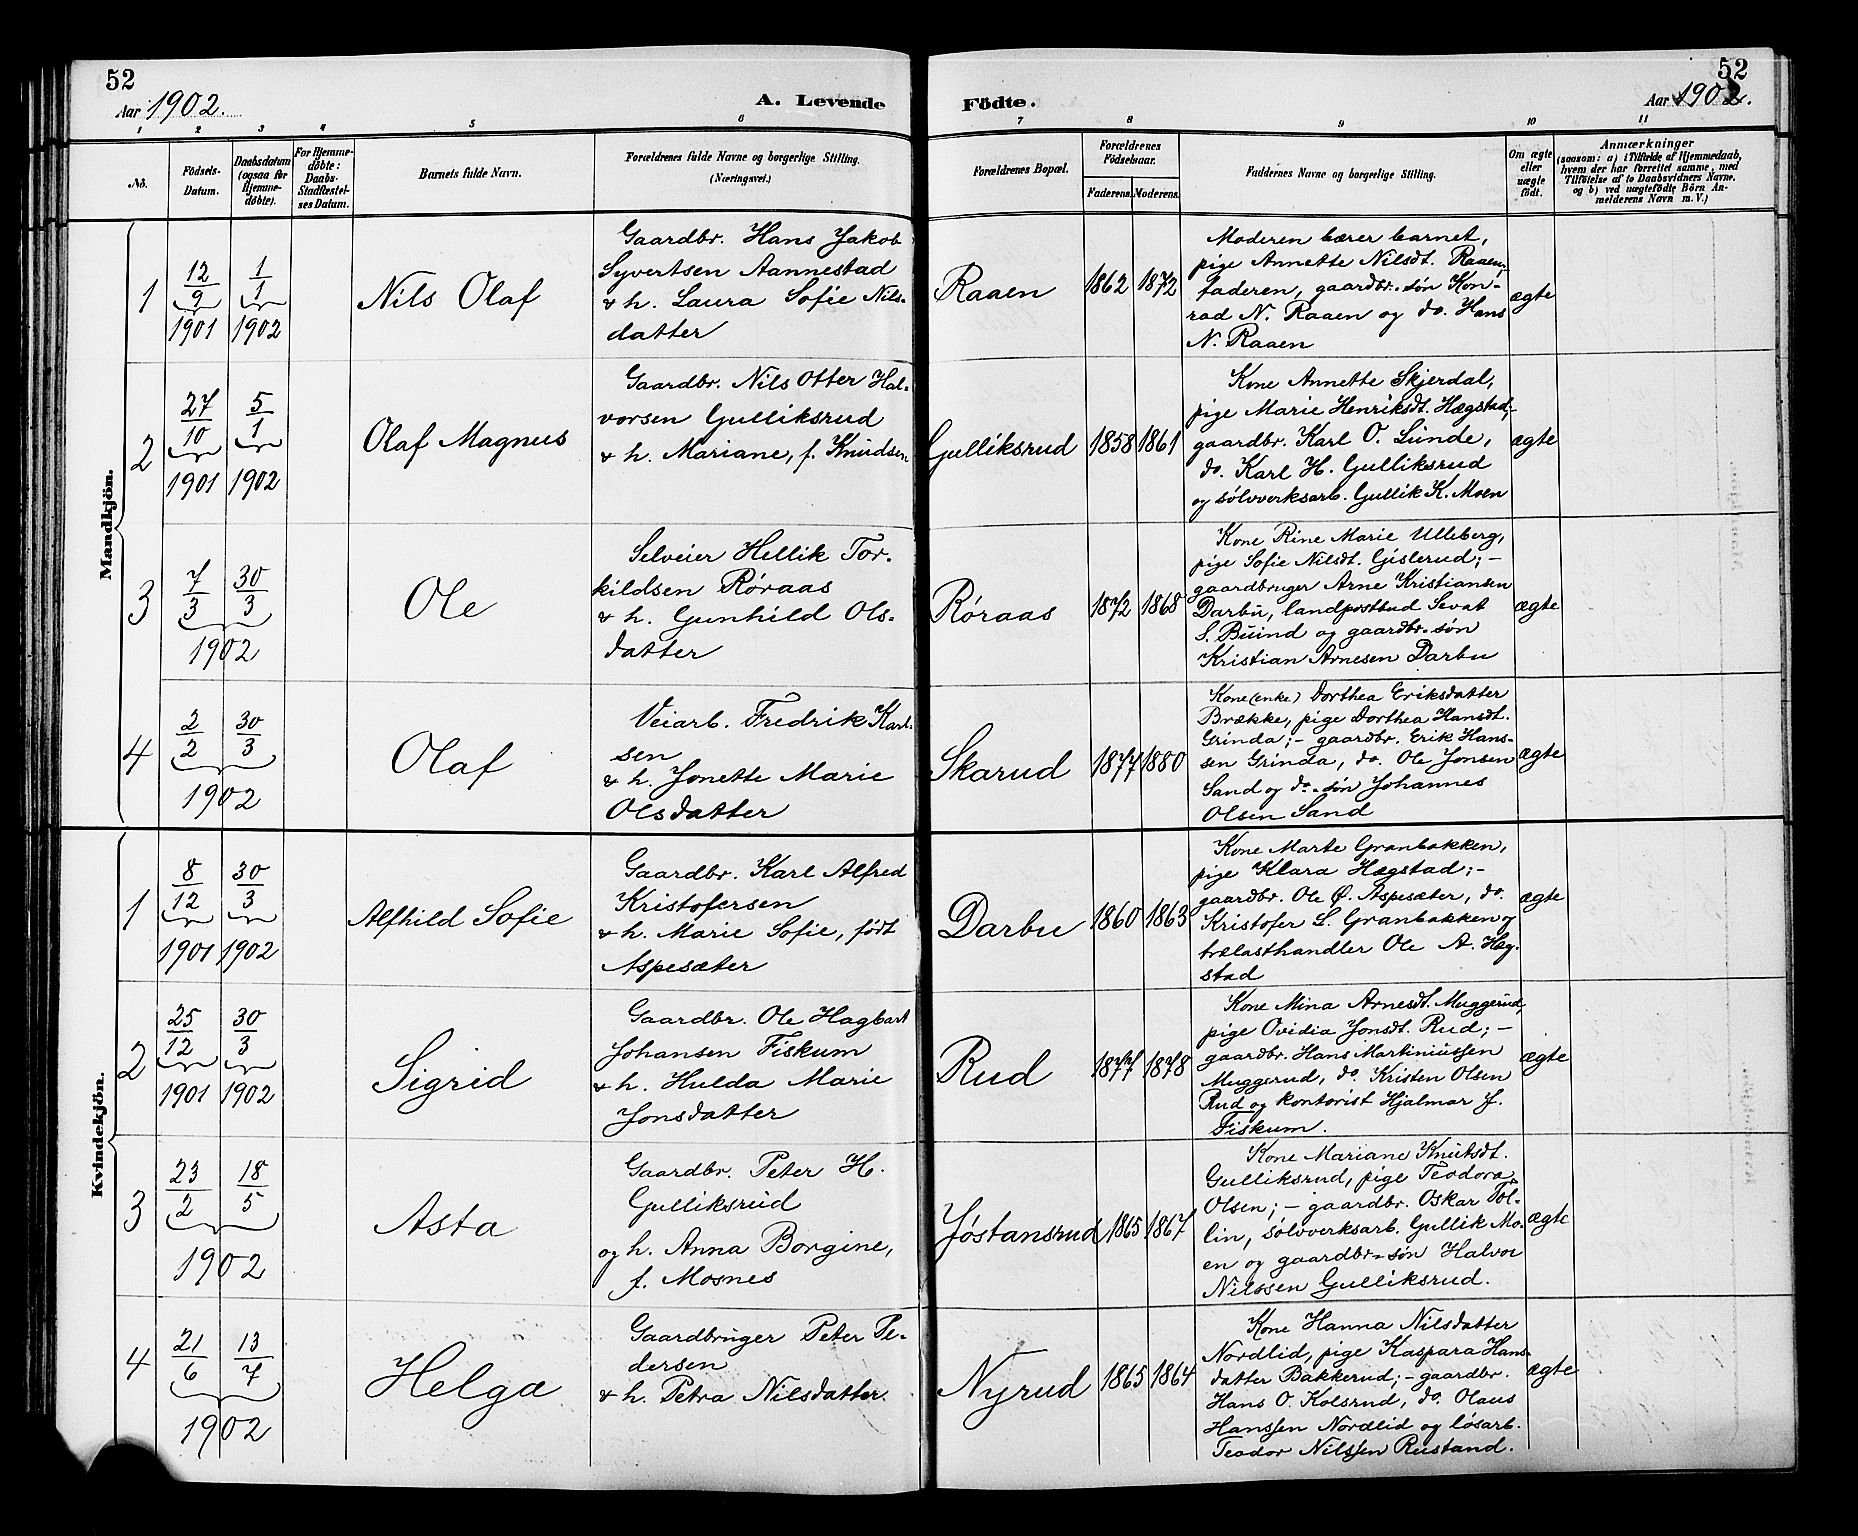 52
Aar 1902.
A. Levende
Födte.
52
Aar 1902.
1 2 3 4 5 6 7 8 9 10 11
No.
Födsels-
Datum.
Daabsdatum
(ogsaa for
Hjemme-
döbte).
For Hjemme-
döbte:
Daabs-
Stadfæstel-
ses Datum.
Barnets fulde Navn.
Forældrenes fulde Navne og borgerlige Stilling.
(Næringsvei.)
Forældrenes Bopæl.
Forældrenes
Födselsaar.
Faderens. Moderens.
Faddernes Navne og borgerlige Stilling.
Om ægte
eller
uægte
født.
Anmærkninger
(saasom: a) i Tilfælde af Hjemmedaab,
hvem der har forrettet samme, med
Tilföielse af to Daabsvidners Navne,
og b) ved uægtefödte Börn An-
melderens Navn m.V.)
Mandkjön.
1
12/9 1901
1/1 1902
Nils Olaf
Gaardbr. Hans Jakob
Syvertsen Aannestad
& h. Laura Sofie Nils-
datter
Raaen
1862 1872
Moderen bærer barnet,
pige Annette Nilsdt. Raaen;
faderen, gaardbr.-søn Kon-
rad N. Raaen og do. Hans
N. Raaen
ægte
2
27/10 1901
5/1 1902
Olaf Magnus
Gaardbr. Nils Otter Hal-
vorsen Gulliksrud
& h. Mariane, f. Knudsen
Gulliksrud
1858 1861
Kone Annette Skjerdal,
pige Marie Henriksdt. Hægstad;-
gaardbr. Karl O. Lunde,
do. Karl H. Gulliksrud
og sølvverksarb. Gullik K. Moen
ægte
3
7/3 30/3
1902
Ole
Selveier Hellik Tor-
kildsen Røraas
& h. Gunhild Ols-
datter
Røraas
1872 1868
Kone Rine Marie Ulleberg,
pige Sofie Nilsdt. Gislerud;-
gaardbruger Arne Kristiansen
Darbu, landpostbud Sevat
S. Buind og gaardbr.-søn
Kristian Arnesen Darbu
ægte
4
2/2 30/3
1902
Olaf
Veiarb. Fredrik Karl-
sen
& h. Jonette Marie
Olsdatter
Skarud
1877 1880
Kone (enke) Dorthea Eriksdatter
Brække, pige Dorthea Hansdt.
Grinda;- gaardbr. Erik Hans-
sen Grinda, do. Ole Jonsen
Sand og do.-søn Johannes
Olsen Sand
ægte
Kvindekjön.
1
8/12 1901
30/3 1902
Alfhild Sofie
Gaardbr. Karl Alfred
Kristofersen
& h. Marie Sofie, født
Aspesæter
Darbu
1860 1863
Kone Marte Granbakken,
pige Klara Hægstad;-
gaardbr. Ole Ø. Aspesæter, do.
Kristofer L. Granbakken og
trælasthandler Ole A. Hæg-
stad
ægte
2
25/12 1901
30/3 1902
Sigrid
Gaardbr. Ole Hagbart
Johansen Fiskum
& h. Hulda Marie
Jonsdatter
Rud
1877 1878
Kone Mina Arnesdt. Muggerud,
pige Ovidia Jonsdt. Rud;-
gaardbr. Hans Martiniussen
Muggerud, do. Kristen Olsen
Rud og kontorist Hjalmar J.
Fiskum.
ægte
3
23/2 18/5
1902
Asta
Gaardbr. Peter H.
Gulliksrud
og h. Anna Borgine,
f. Mosnes
Jøstansrud
1865 1867
Kone Mariane Knutsdt.
Gulliksrud, pige Teodora
Olsen;- gaardbr. Oskar Tol-
lin, sølvverksarb. Gullik Mo-
en og gaardbr.-søn Halvor
Nilssen Gulliksrud.
ægte
4
21/6 13/7
1902
Helga
Gaardbruger Peter Pe-
dersen
& h. Petra Nilsdatter.
Nyrud
1865 1864
Kone Hanna Nilsdatter
Nordlid, pige Kaspara Hans-
datter Bakkerud;- gaardbr.
Hans O. Kolsrud, do. Olaus
Hanssen Nordlid og løsarb.
Teodor Nilssen Rustand.
ægte